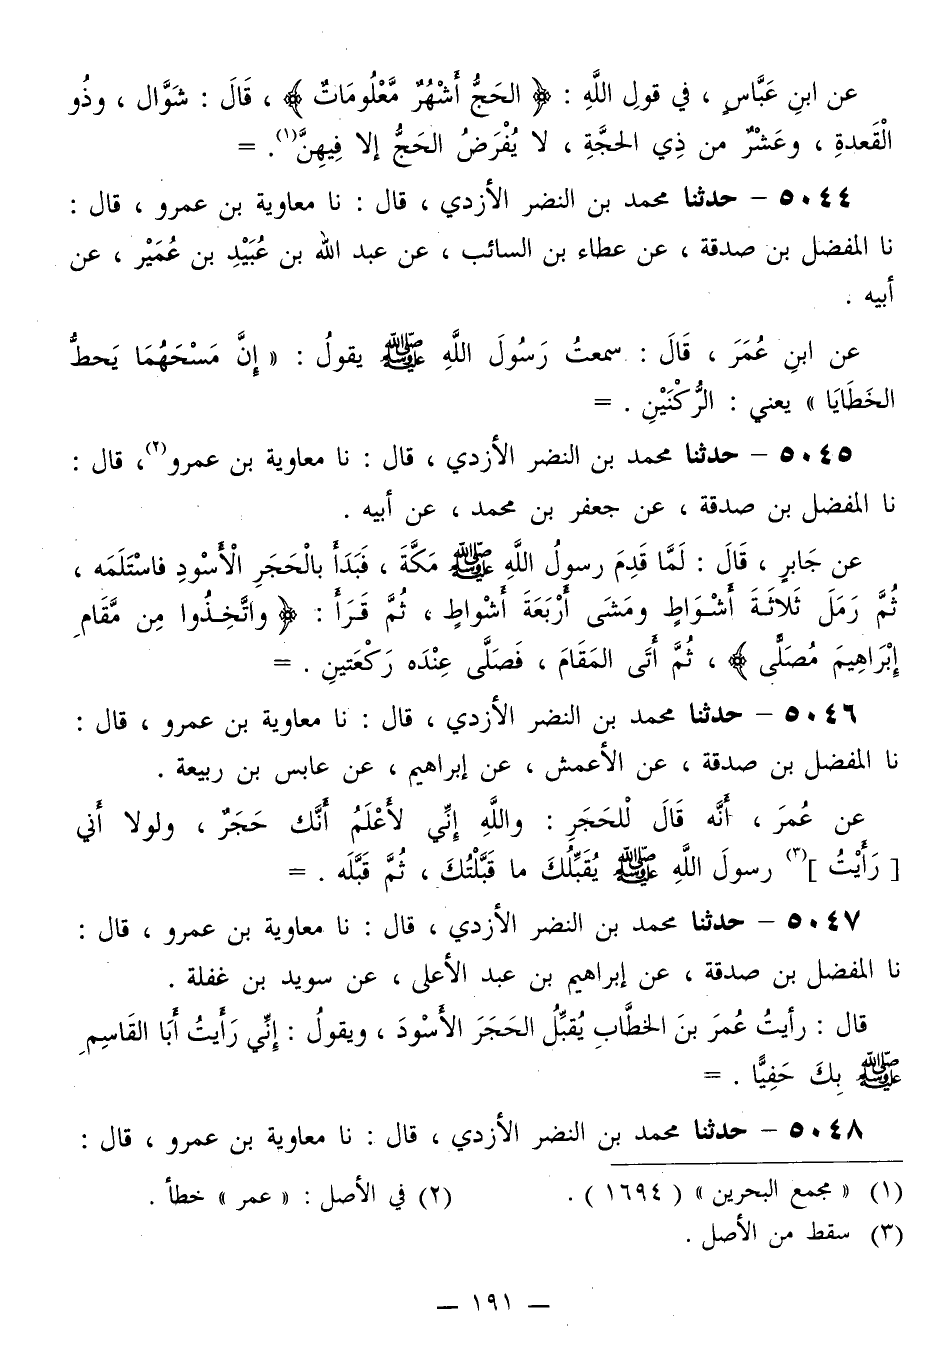 عن ابنِ عَبَّاسٍ ، في قولِ اللَّهِ : ﴿ الحَجُّ أَشْهُرٌ مَّعْلُومَاتٌ ﴾ ، قَالَ : شَوَّال ، وذُو
الْقَعدةِ ، وعَشْرٌ من ذِي الحجَّةِ ، لا يُفْرَضُ الحَجُّ إلا فِيهِنَّ(١). =
٥٠٤٤ – حدثنا محمد بن النضر الأزدي ، قال : نا معاوية بن عمرو ، قال :
نا المفضل بن صدقة ، عن عطاء بن السائب ، عن عبد الله بن عُبَيْدِ بن عُمَيْر ، عن
أبيه .
عن ابنِ عُمَرَ ، قَالَ : سمعتُ رَسُولَ اللَّهِ ﷺ يقولُ : « إِنَّ مَسْحَهُمَا يَحطُّ
الخَطَايَا » يعني : الرُّكْنَيْنِ . =
٥٠٤٥ – حدثنا محمد بن النضر الأزدي ، قال : نا معاوية بن عمرو(٢)، قال :
نا المفضل بن صدقة ، عن جعفر بن محمد ، عن أبيه .
عن جَابرٍ ، قَالَ : لَمَّا قَدِمَ رسولُ اللَّهِ ﷺ مَكَّةَ ، فَبَدَأَ بالْحَجَرِ الْأَسْودِ فاسْتَلَمَه ،
ثُمَّ رَمَلَ ثَلاثَةَ أَشْوَاطٍ ومَشَى أَرْبَعَةَ أَشْواطٍ ، ثُمَّ قَرَأَ : ﴿ واتَّخِذُوا مِن مَّقَامِ
إِبْرَاهِيمَ مُصَلًّى ﴾ ، ثُمَّ أَتَى المَقَامَ ، فَصَلَّى عِنْدَه رَكْعَتينِ . =
٥٠٤٦ – حدثنا محمد بن النضر الأزدي ، قال : نا معاوية بن عمرو ، قال :
نا المفضل بن صدقة ، عن الأعمش ، عن إبراهيم ، عن عابس بن ربيعة .
عن عُمَرَ ، أَنَّه قَالَ لْلحَجَرِ : واللَّهِ إِنِّي لأَعْلَمُ أَنَّك حَجَرٌ ، ولولا أَني
[ رَأَيْتُ ](٣) رسولَ اللَّهِ ﷺ يُقَبِّلُكَ ما قَبَّلْتُكَ ، ثُمَّ قَبَّلَه . =
٥٠٤٧ – حدثنا محمد بن النضر الأزدي ، قال : نا معاوية بن عمرو ، قال :
نا المفضل بن صدقة ، عن إبراهيم بن عبد الأعلى ، عن سويد بن غفلة .
قال : رأيتُ عُمرَ بنَ الخطَّابِ يُقبِّلُ الحَجَرَ الأَسْودَ ، ويقولُ : إنِّي رَأَيتُ أَبَا القَاسِمِ
ﷺ بِكَ حَفِيًّا . =
٥٠٤٨ – حدثنا محمد بن النضر الأزدي ، قال : نا معاوية بن عمرو ، قال :
(١) « مجمع البحرين » ( ١٦٩٤ ) . (٢) في الأصل : « عمر » خطأ .
(٣) سقط من الأصل .
– ١٩١ –